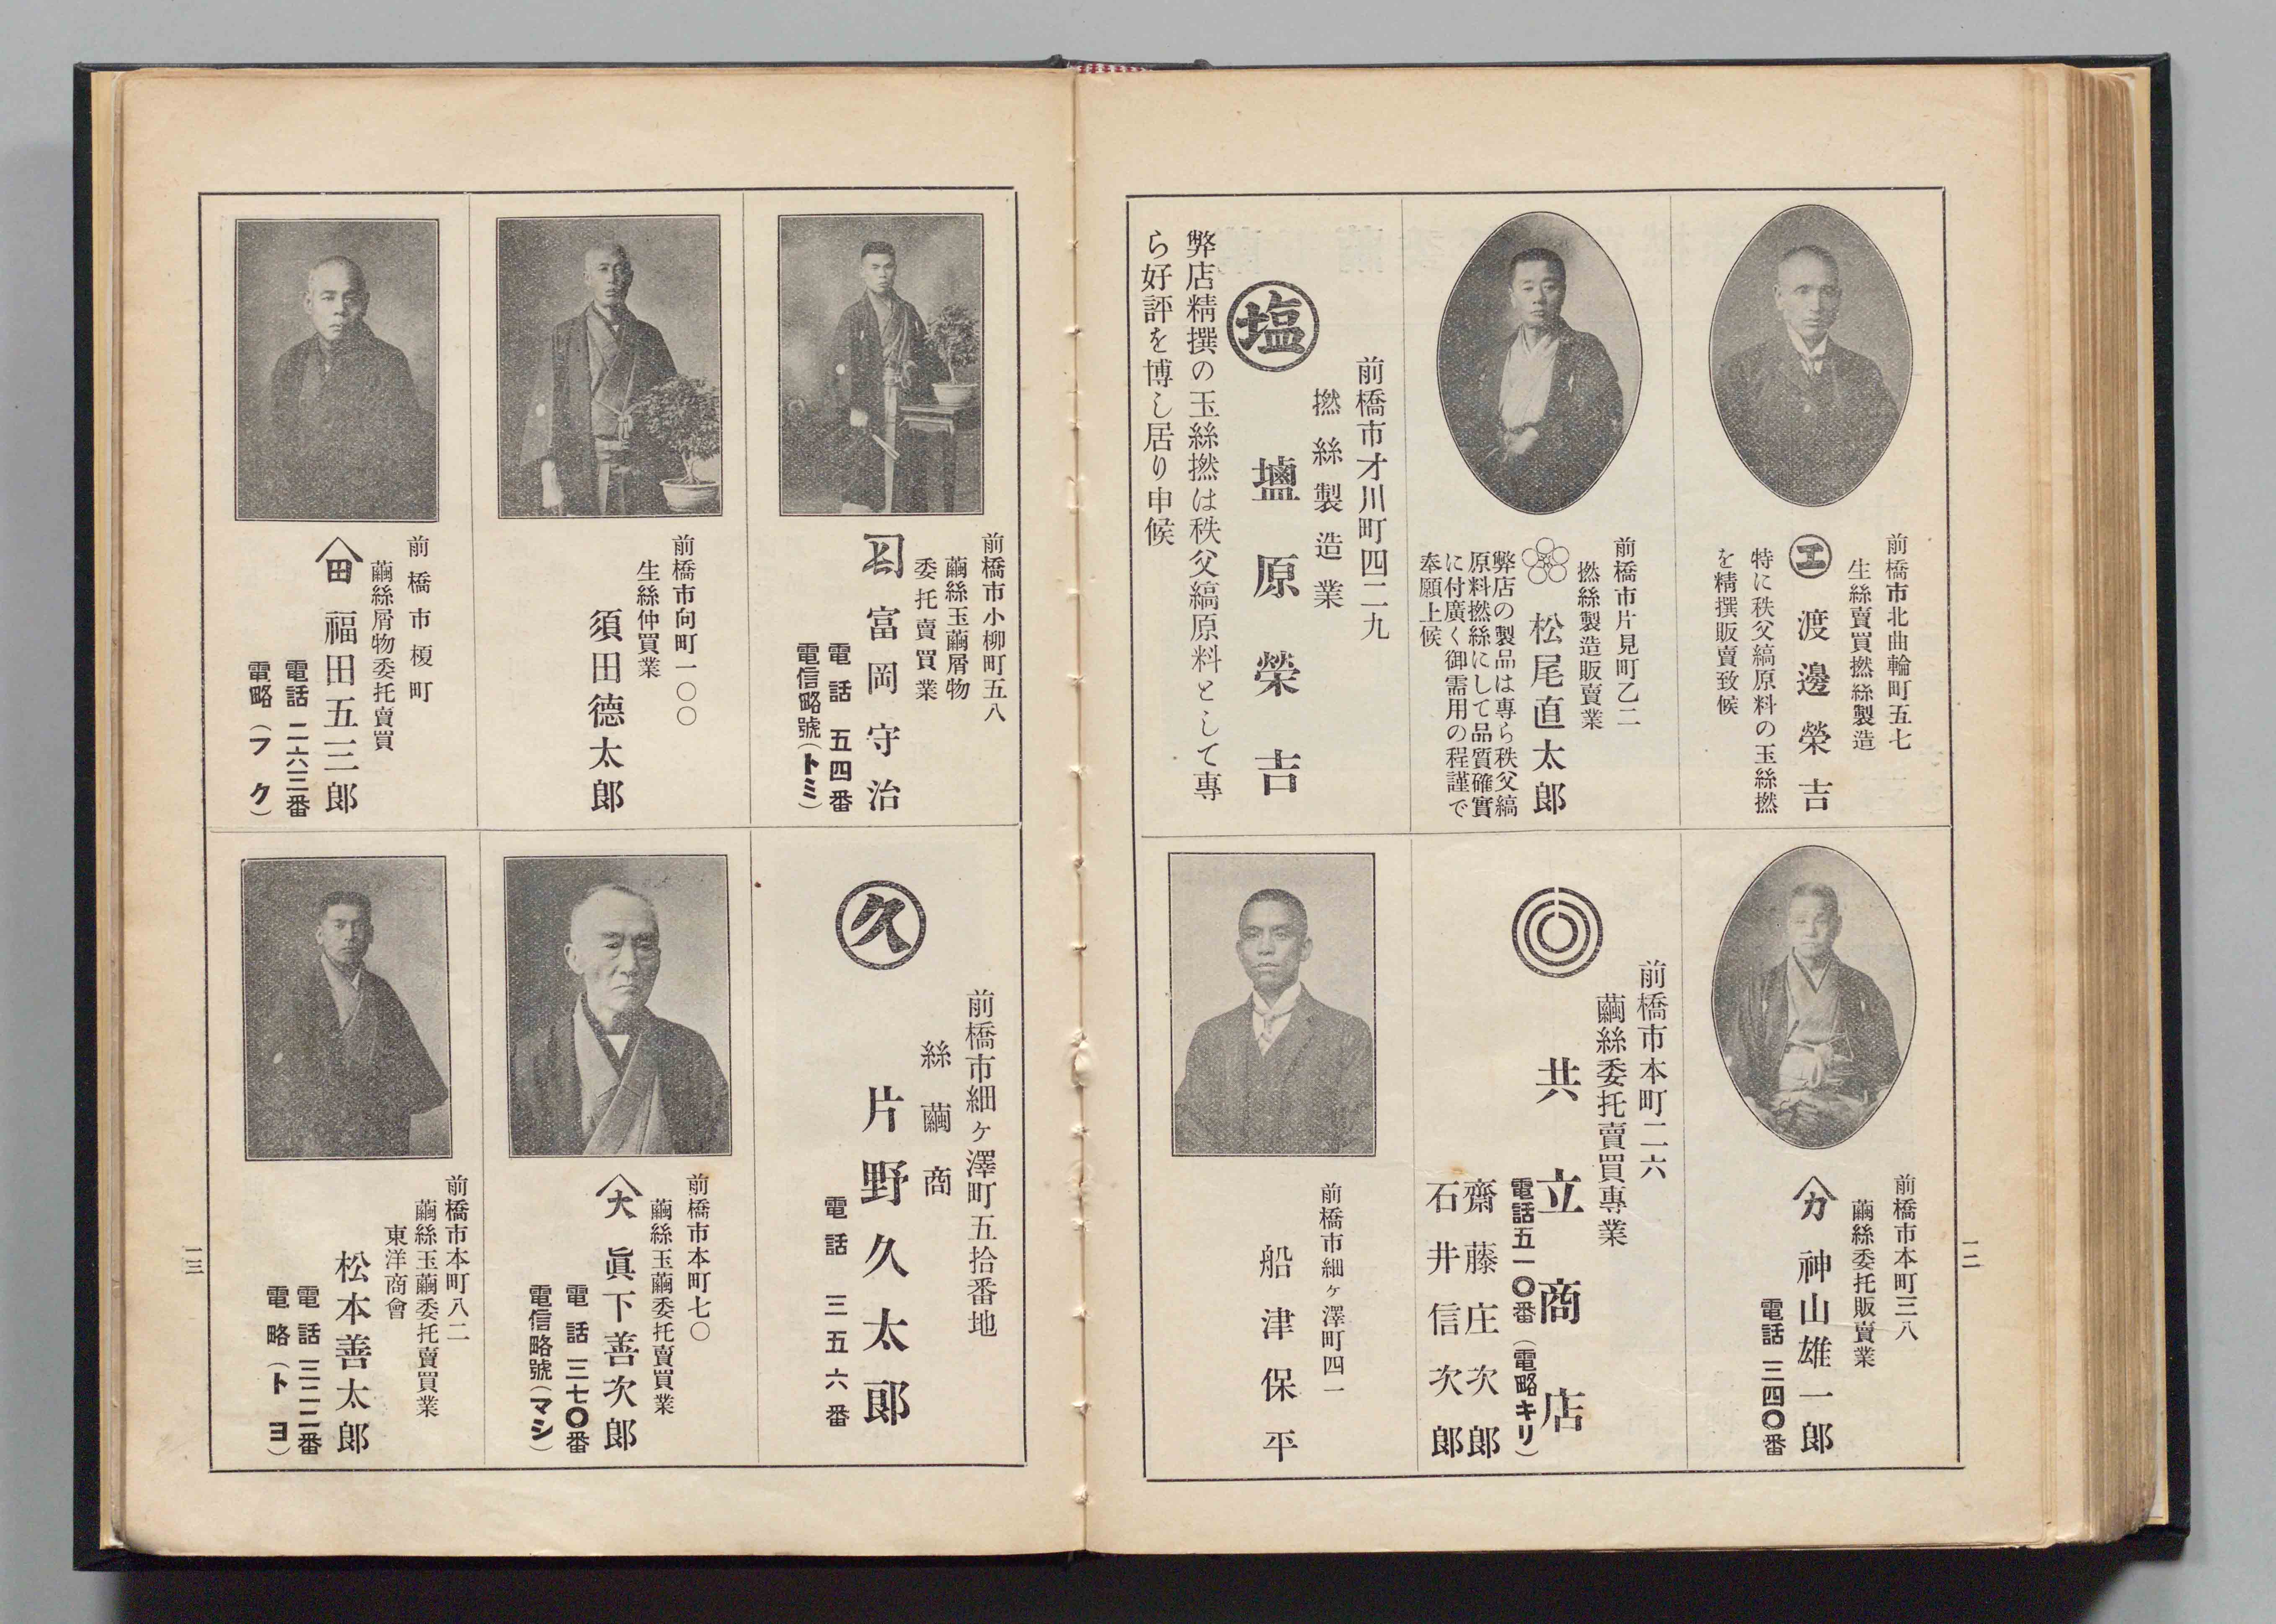 一二
前橋市北曲輪町五七
生絲賣買撚絲製造
㊤エ
渡邊榮吉
特に秩父縞原料の玉絲撚
を精撰販賣致候
前橋市片見町乙二
撚絲製造販賣業
松尾直太郎
弊店の製品は專ら秩父縞
原料撚絲にして品質確實
に付廣く御需用の程謹で
奉願上候
前橋市才川町四二九
撚絲製造業
塩
塩原榮吉
弊店精撰の玉絲撚は秩父縞原料として專
ら好評を博し居り申候
前橋市本町三八
繭絲委托販賣業
カ
神山雄一郎
電話 三四〇番
前橋市本町二六
繭絲委托賣買專業
共立商店
電話五一〇番(電略キリ)
齋藤庄次郎
石井信次郎
前橋市細ヶ澤町四一
船津保平
前橋市小柳町五八
繭絲玉繭屑物
委托賣買業
富岡守治
電話 五四番
電信略號(トミ)
前橋市向町一〇〇
生絲仲買業
須田德太郎
前橋市榎町
繭絲屑物委托賣買
田
福田五三郎
電話 二六三番
電略(フク)
前橋市細ヶ澤町五拾番地
絲繭商
久
片野久太郎
電話 三五六番
前橋市本町七〇
繭絲玉繭委托賣買業
大
眞下善次郎
電話 三七〇番
電信略號(マシ)
前橋市本町八二
繭絲玉繭委托賣買業
東洋商會
松本善太郎
電話 三二二番
電略(トヨ)
一三